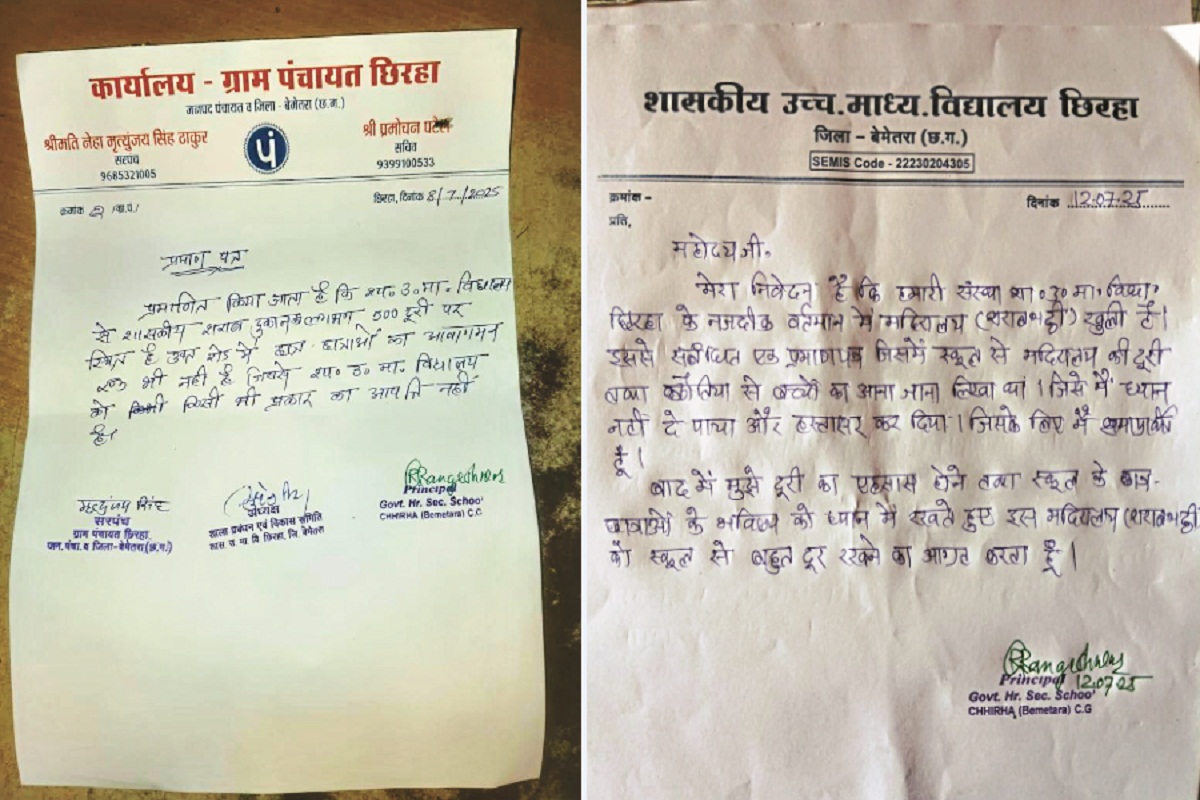 कार्यालय - ग्राम पंचायत छिरहा
जनपद पंचायत व जिला - बेमेतरा (छ.ग.)
श्रीमति नेहा मृत्युंजय सिंह ठाकुर
सरपंच
9685321005
पं
श्री प्रमोचन पटेल
सचिव
9399100533
क्रमांक 2
छिरहा, दिनांक 8/7/2025
प्रमाण पत्र
प्रमाणित किया जाता है कि शा. उ. मा. विद्यालय
से शासकीय शराब दुकान लगभग 500 दूरी पर
स्थित है उक्त रोड में छात्र-छात्राओं का आवागमन
भी नही है जिससे शा. उ. मा. विद्यालय
को किसी भी प्रकार का आपत्ति नहीं
है।
मृत्युंजय सिंह
सरपंच
ग्राम पंचायत छिरहा
जन.पंचा.व जिला-बेमेतरा(छ.ग.)
अध्यक्ष
शाला प्रबंधन एवं विकास समिति
छिरहा, जि. बेमेतरा
Principal
Govt. Hr. Sec. School
CHHIRHA (Bemetara) C.G
शासकीय उच्च.माध्य.विद्यालय छिरहा
जिला – बेमेतरा (छ.ग.)
SEMIS Code - 22230204305
क्रमांक –
दिनांक 12.07.25
प्रति,
महोदय जी,
मेरा निवेदन है कि हमारी संस्था शा. उ. मा. विद्या.
छिरहा के नजदीक वर्तमान में मदिरालय (शराब भट्ठी) खुली है।
इससे संबंधित एक प्रमाणपत्र जिसमें स्कूल से मदिरालय की दूरी
तथा से बच्चों का आना जाना लिखा था। जिसे मैं ध्यान
नहीं दे पाया और हस्ताक्षर कर दिया। जिसके लिए मैं क्षमाप्रार्थी
हूँ।
बाद में मुझे दूरी का एहसास होने तथा स्कूल के छात्र-
छात्राओं के भविष्य को ध्यान में रखते हुए इस मदिरालय (शराब भट्ठी)
को स्कूल से बहुत दूर रखने का आग्रह करता हूँ।
Principal 12.07.25
Govt. Hr. Sec. School
CHHIRHA (Bemetara) C.G